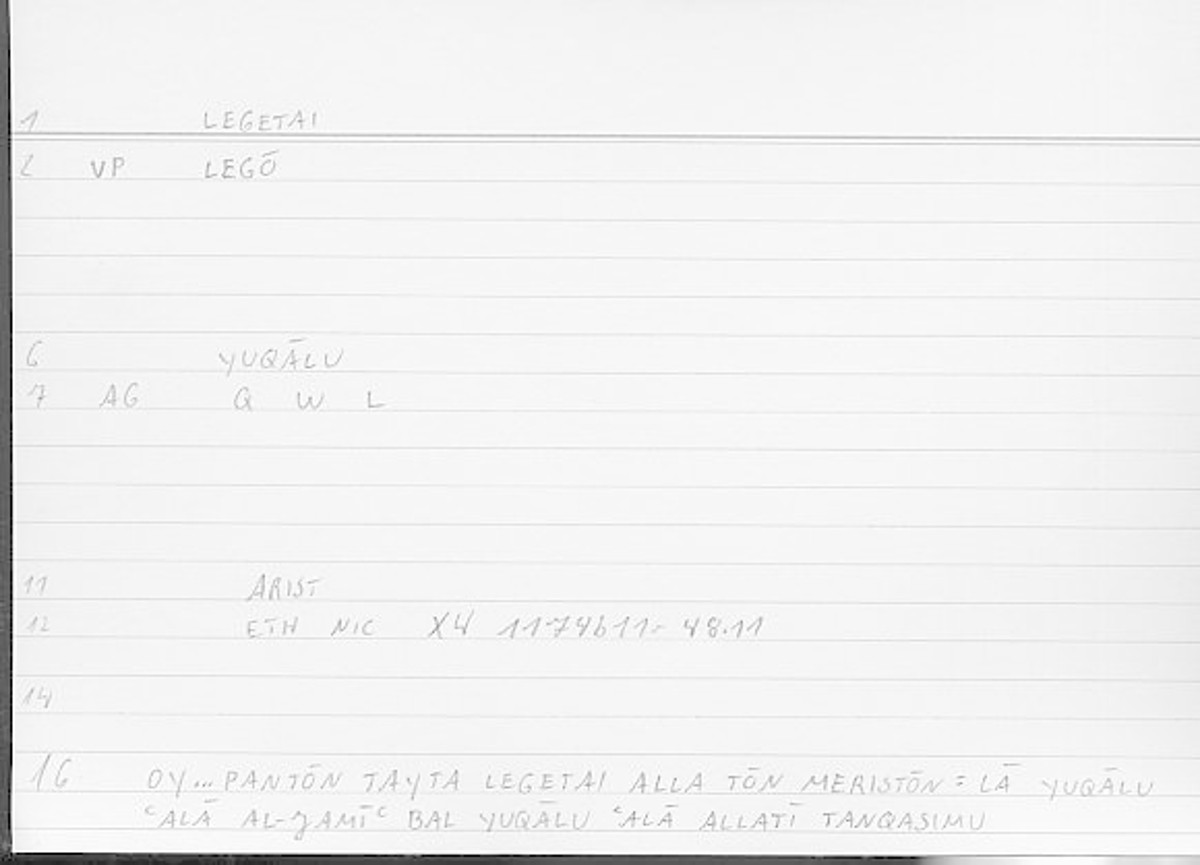 1 LEGETAI
2 VP LEGŌ
6 YUQĀLU
7 AG Q W L
11 ARIST
12 ETH NIC X4 1174b11= 48.11
14
16 OY... PANTŌN TAYTA LEGETAI ALLA TŌN MERISTŌN = LĀ YUQĀLU
ʿALĀ AL-ǦAMĪʿ BAL YUQĀLU ʿALĀ ALLATĪ TANQASIMU